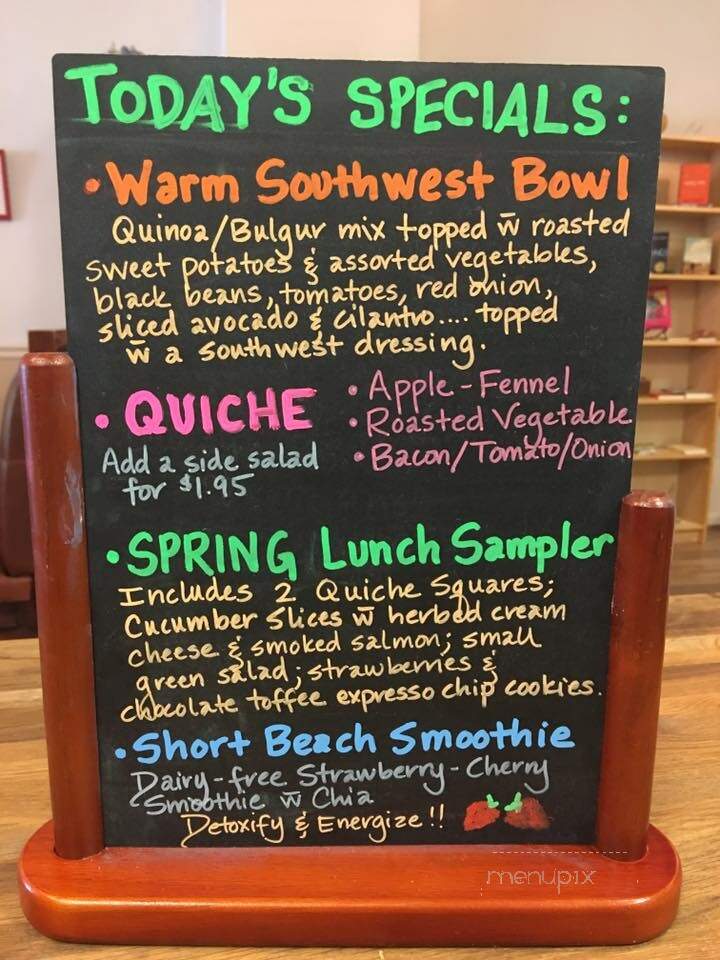 TODAY'S SPECIALS:
• Warm Southwest Bowl
Quinoa/Bulgur mix topped w̄ roasted
sweet potatoes & assorted vegetables,
black beans, tomatoes, red onion,
sliced avocado & cilantro.... topped
w̄ a southwest dressing.
• QUICHE
Add a side salad
for $1.95
• Apple - Fennel
• Roasted Vegetable
• Bacon/Tomato/Onion
• SPRING Lunch Sampler
Includes 2 Quiche Squares;
Cucumber Slices w̄ herbed cream
cheese & smoked salmon; small
green salad; strawberries &
chocolate toffee expresso chip cookies.
• Short Beach Smoothie
Dairy-free Strawberry-Cherry
Smoothie w̄ Chia
Detoxify & Energize!!
menupix